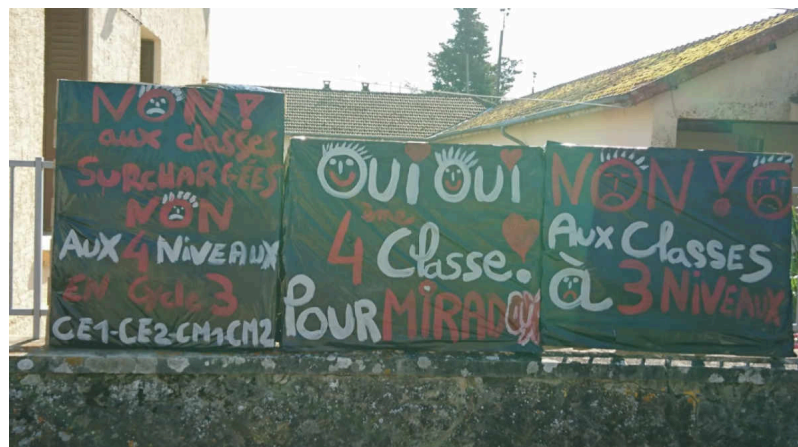 NON !
aux classes
SURCHARGÉES
NON
AUX 4 NIVEAUX
EN Cycle 3
CE1-CE2-CM1-CM2
OUi OUi
4ème Classe.
POUR MiRADOX
NON !
Aux ClASSES
à 3 NiVEAUX